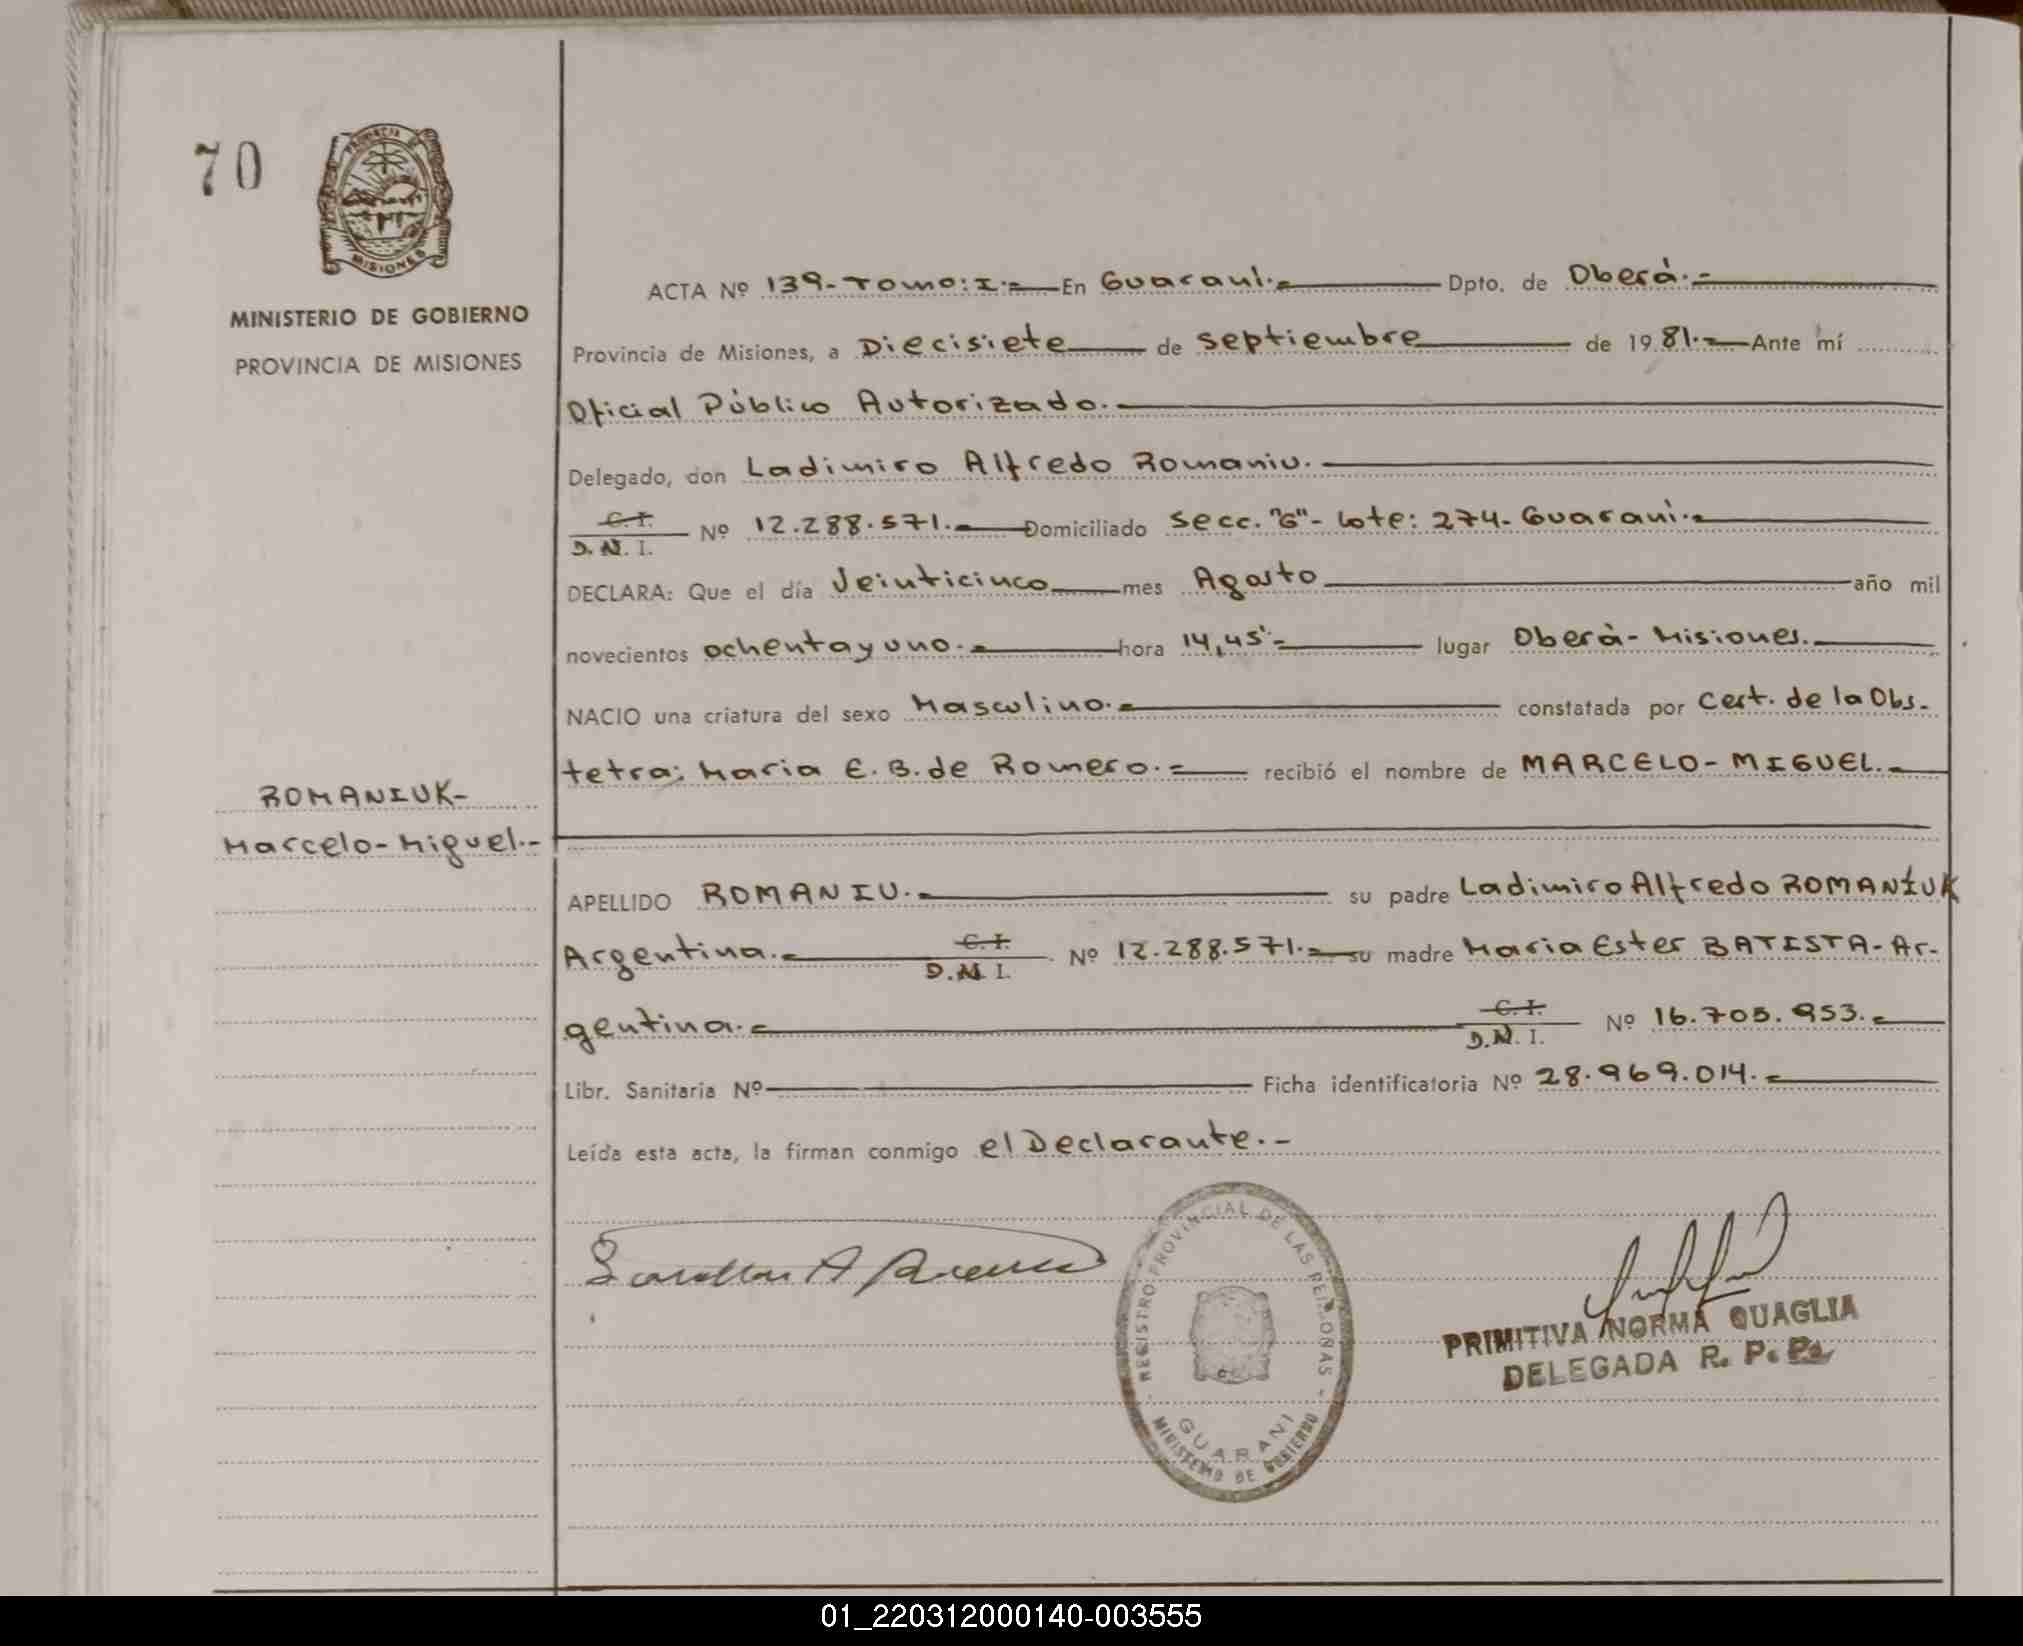 70
PROVINCIA DE
MISIONES
MINISTERIO DE GOBIERNO
PROVINCIA DE MISIONES
ACTA Nº 139-Tomo:I.- En Guaraní.- Dpto. de Oberá.-
Provincia de Misiones, a Diecisiete de septiembre de 1981.- Ante mí
Oficial Público Autorizado.-
Delegado, don Ladimiro Alfredo Romaniu.-
C.I.
D.N.I. Nº 12.288.571.- Domiciliado secc. "G"- Lote: 274- Guaraní.-
DECLARA: Que el día Veinticinco mes Agosto año mil
novecientos ochenta y uno.- hora 14,45'- lugar Oberá- Misiones.-
NACIO una criatura del sexo Masculino.- constatada por Cert. de la Obs-
tetra: Maria E. B. de Romero.- recibió el nombre de MARCELO- MIGUEL.-
ROMANIUK-
Marcelo-Miguel.-
APELLIDO ROMANIU.- su padre Ladimiro Alfredo ROMANIUK
Argentina.- C.I. D.N.I. Nº 12.288.571.- su madre Maria Ester BATISTA- Ar-
gentina.- C.I. D.N.I. Nº 16.705.953.-
Libr. Sanitaria Nº Ficha identificatoria Nº 28.969.014.-
Leída esta acta, la firman conmigo el Declarante.-
REGISTRO PROVINCIAL DE LAS PERSONAS
GUARANI
MINISTERIO DE GOBIERNO
PRIMITIVA NORMA QUAGLIA
DELEGADA R. P. P.
01_220312000140-003555